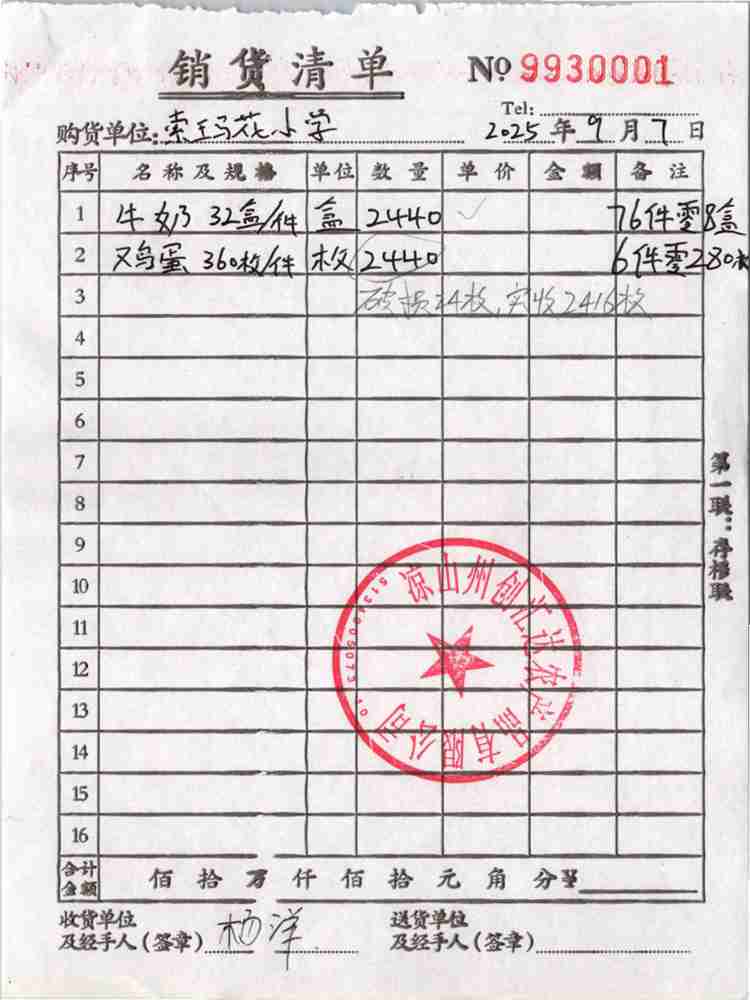 销货清单 № 9930001
Tel:
购货单位:索玛花小学 2025年9月7日
序号 名称及规格 单位 数量 单价 金额 备注
1 牛奶 32盒/件 盒 2440 ✓ 76件零8盒
2 鸡蛋 360枚/件 枚 2440 6件零280枚
3 破损24枚,实收2416枚
4
5
6
7
8
9
10
11
12
13
14
15
16
合计金额 佰拾万仟佰拾元角分¥
收货单位 送货单位
及经手人(签章) 杨洋 及经手人(签章)
第一联:存根联
凉山州创汇达农产品有限公司